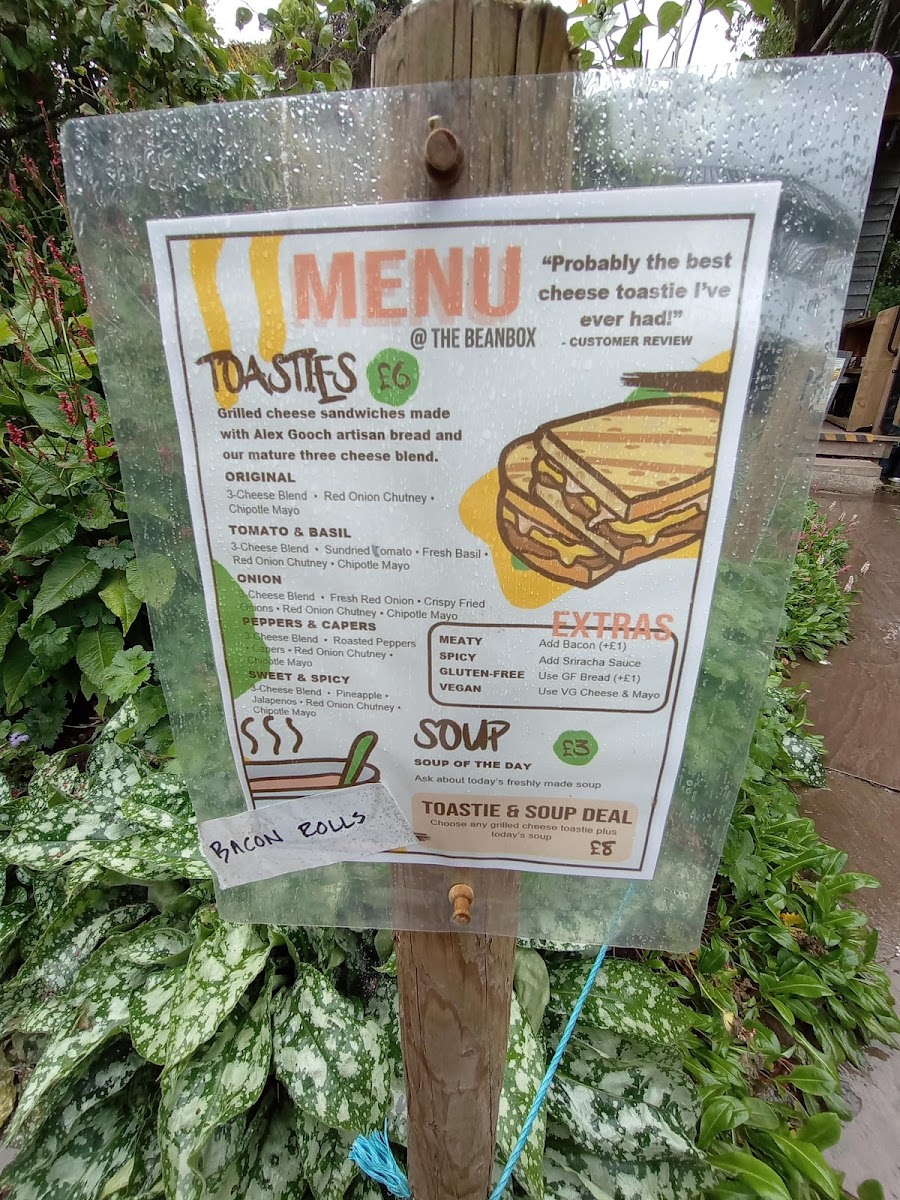 MENU
@ THE BEANBOX
"Probably the best
cheese toastie I've
ever had!"
- CUSTOMER REVIEW
TOASTIES £6
Grilled cheese sandwiches made
with Alex Gooch artisan bread and
our mature three cheese blend.
ORIGINAL
3-Cheese Blend • Red Onion Chutney •
Chipotle Mayo
TOMATO & BASIL
3-Cheese Blend • Sundried Tomato • Fresh Basil •
Red Onion Chutney • Chipotle Mayo
ONION
Cheese Blend • Fresh Red Onion • Crispy Fried
Onions • Red Onion Chutney • Chipotle Mayo
PEPPERS & CAPERS
3-Cheese Blend • Roasted Peppers
• Capers • Red Onion Chutney •
Chipotle Mayo
SWEET & SPICY
3-Cheese Blend • Pineapple •
Jalapenos • Red Onion Chutney •
Chipotle Mayo
EXTRAS
MEATY Add Bacon (+£1)
SPICY Add Sriracha Sauce
GLUTEN-FREE Use GF Bread (+£1)
VEGAN Use VG Cheese & Mayo
SOUP £3
SOUP OF THE DAY
Ask about today's freshly made soup
TOASTIE & SOUP DEAL
Choose any grilled cheese toastie plus
today's soup
£8
BACON ROLLS